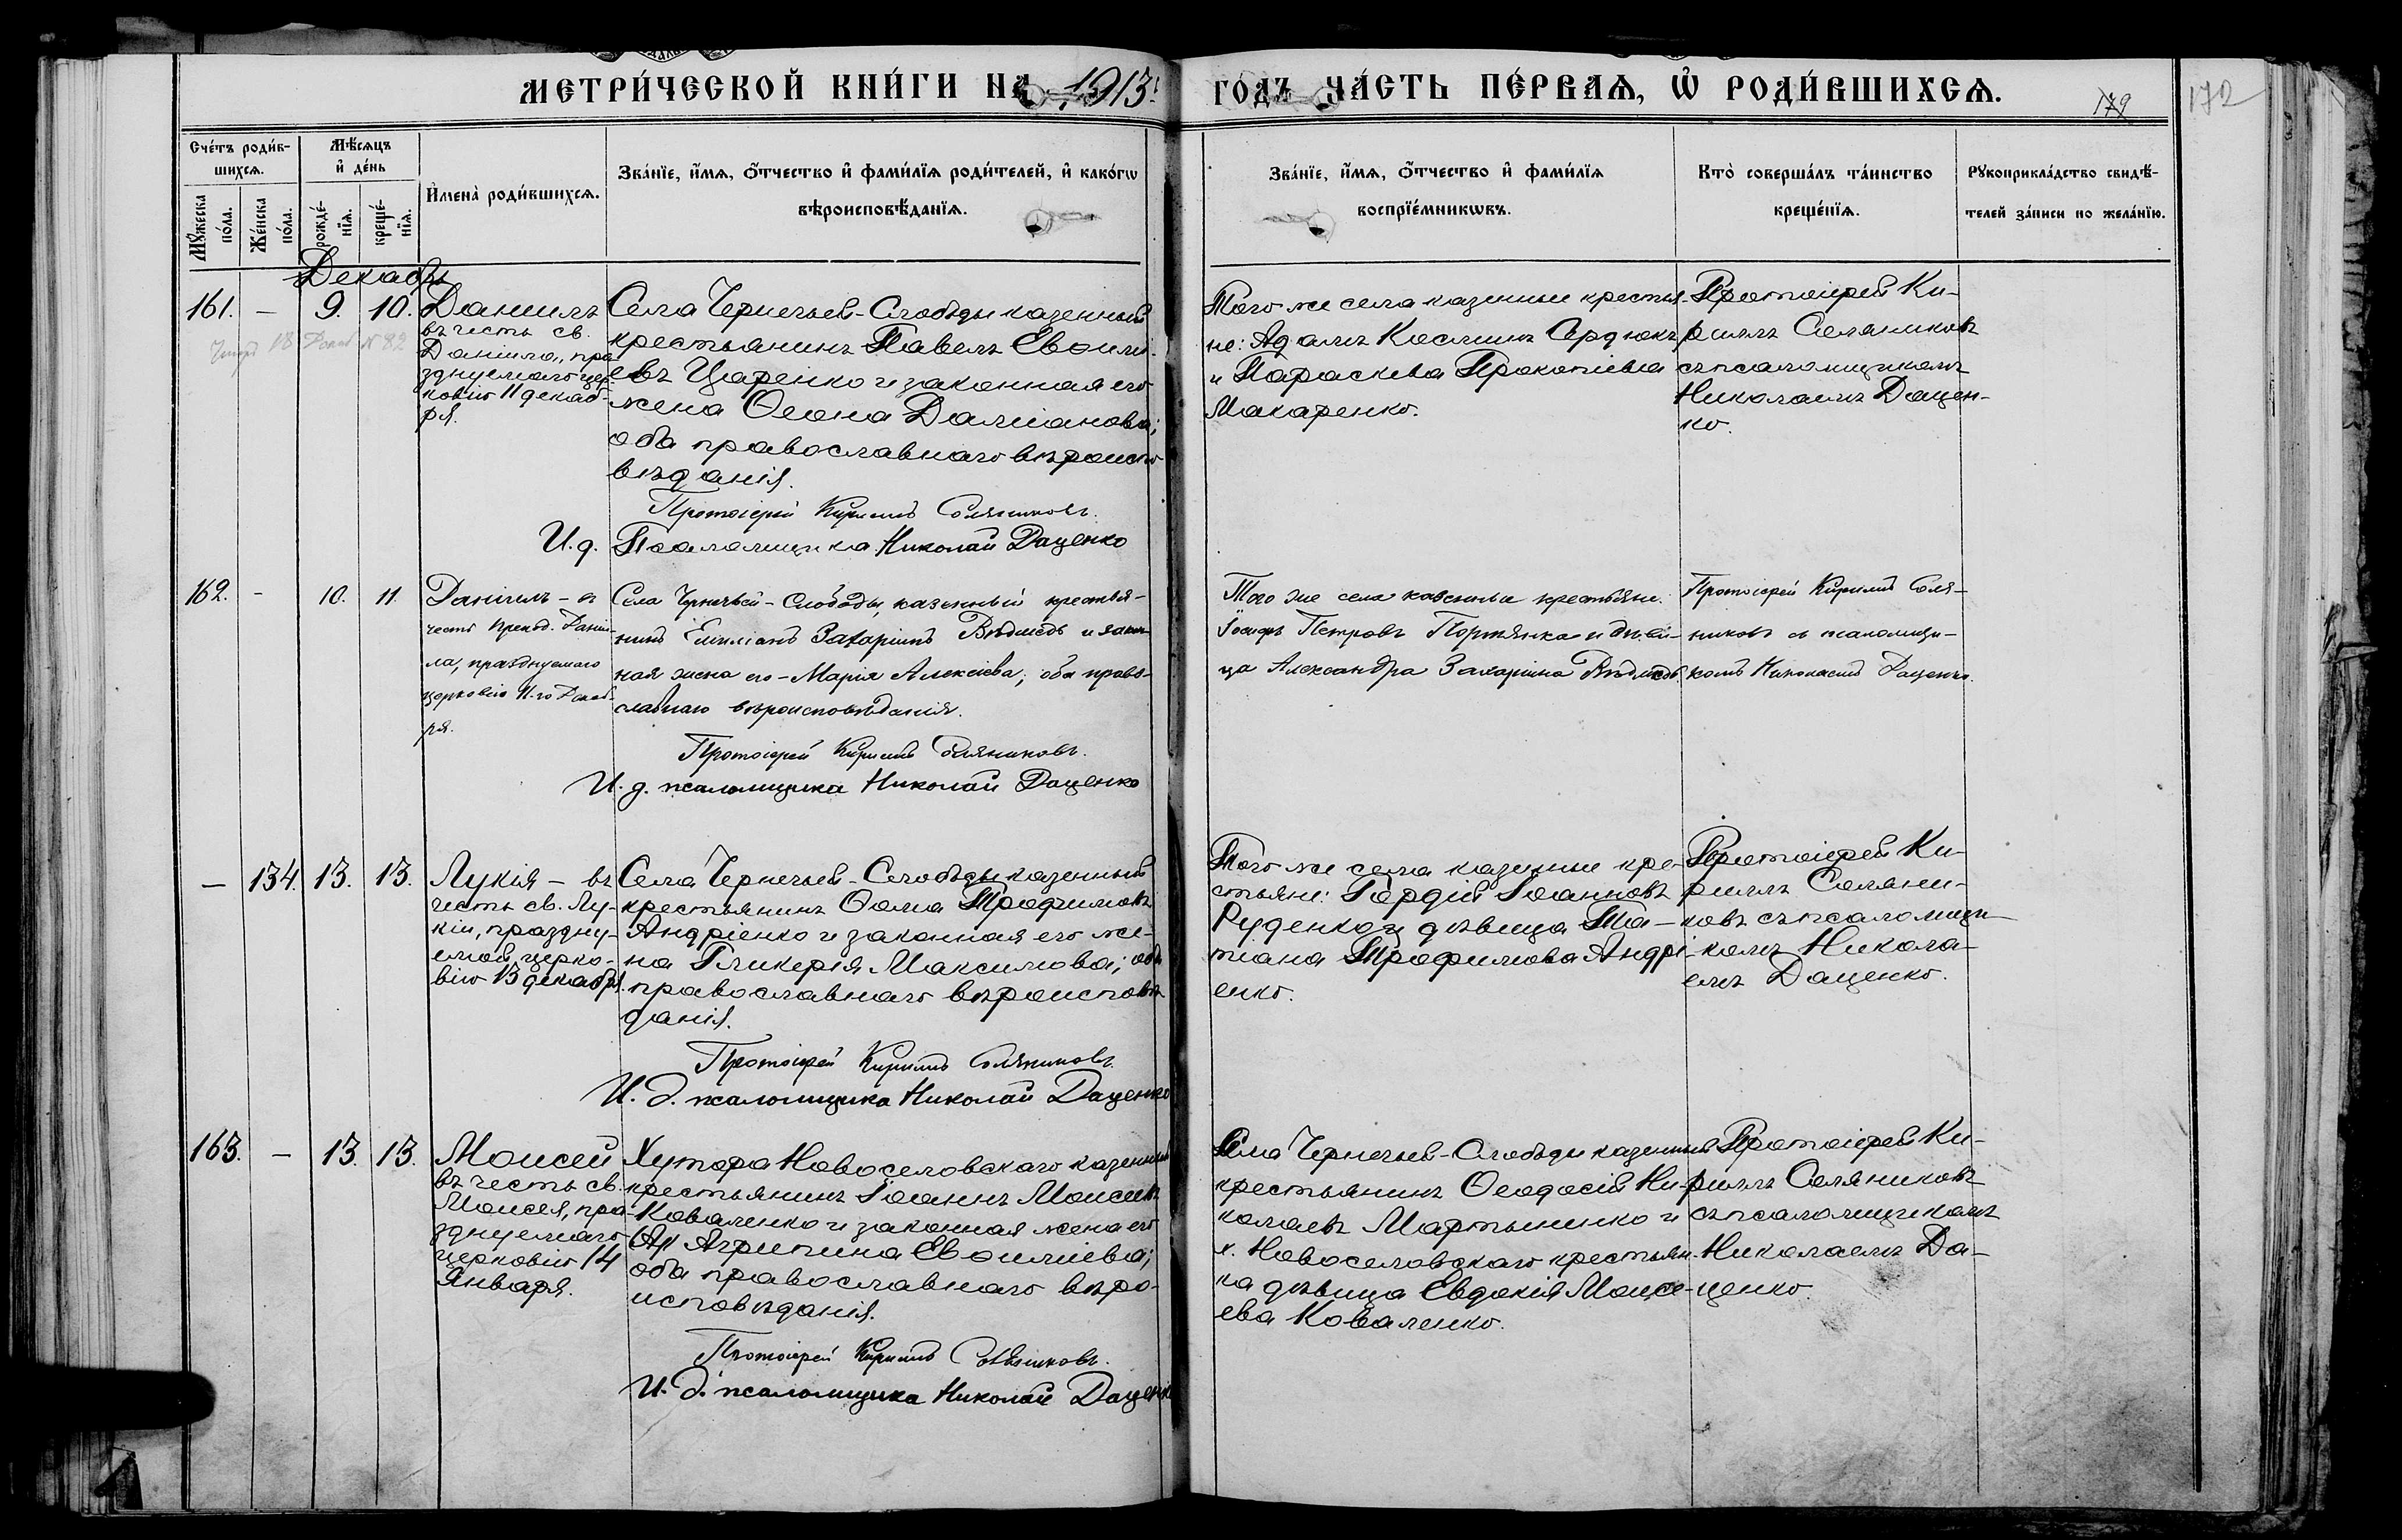 МЕТРИ́ЧЕСКОЙ КНИ́ГИ НА 1913.
ГО́ДЪ ЧА́СТЬ ПЕ́РВАѦ, Ѽ РОДИ́ВШИХСѦ.
179
172
Сче́тъ роди́в-
шихсѧ.
Мѣ́сѧцъ
и҆ де́нь
Мꙋ́жеска по́ла.
Же́нска по́ла.
рожде́-
нїѧ.
креще́-
нїѧ.
И҆мена̀ роди́вшихсѧ.
Зва́нїе, и҆́мѧ, ѻ҆́тчество и҆ фами́лїѧ роди́телей, и҆ како́гѡ
вѣроисповѣ́данїѧ.
Зва́нїе, и҆́мѧ, ѻ҆́тчество и҆ фами́лїѧ
воспрїе́мникѡвъ.
Кто̀ соверша́лъ та́инство
креще́нїѧ.
Рꙋкоприкла́дство свидѣ́-
телей за́писи по жела́нїю.
Декабрь
161. — 9. 10.
Даниилъ
въ честь св.
Даніила, пра-
зднуемаго цер-
ковію 11 декаб-
ря.
Села Чернечьей-Слободы казенный
крестьянинъ Павелъ Евѳимі-
евъ Царенко и законная его
жена Ѳеона Даміанова;
оба православнаго вѣроиспо-
вѣданія.
Протоіерей Кириллъ Соляниковъ.
И. д. Псаломщика Николай Даценко
Того же села казенные крестья-
не: Адамъ Косминъ Сердюкъ
и Параскева Прокопіева
Макаренко.
Протоіерей Ки-
риллъ Соляниковъ
съ псаломщикомъ
Николаемъ Дацен-
ко.
162. - 10. 11.
Даніилъ – въ
честь препод. Дании-
ла, празднуемаго
церковію 11-го Декаб-
ря.
Села Чернечьей-Слободы, казенный крестья-
нинъ Емиліанъ Захаріинъ Вѣдмедь и закон-
ная жена его – Марія Алексіева; оба право-
славнаго вѣроисповѣданія.
Протоіерей Кириллъ Соляниковъ.
И. д. псаломщика Николай Даценко
Того же села казенные крестьяне:
Іосифъ Петровъ Портянка и дѣви-
ца Александра Захаріина Вѣдмедь.
Протоіерей Кириллъ Соля-
никовъ съ псаломщи-
комъ Николаемъ Даценко.
— 134. 13. 13.
Лукія – въ
честь св. Лу-
кіи, праздну-
емой церко-
вію 13 декабря.
Села Чернечьей-Слободы казенный
крестьянинъ Ѳома Трофимовъ
Андріенко и законная его же-
на Гликерія Максимова; оба
православнаго вѣроисповѣ-
данія.
Протоіерей Кириллъ Соляниковъ.
И. д. псаломщика Николай Даценко
Того же села казенные кре-
стьяне: Гордій Іоанновъ
Руденко и дѣвица Та-
тіана Трофимова Андрі-
енко.
Протоіерей Ки-
риллъ Соляни-
ковъ съ псаломщи-
комъ Никола-
емъ Даценко.
163. — 13. 13.
Моисей
въ честь св.
Моисея, пра-
зднуемаго
церковію 14
Января.
Хутора Новоселовскаго казенный
крестьянинъ Іоаннъ Моисеевъ
Коваленко и законная жена его
Агрипина Евѳиміева;
оба православнаго вѣро-
исповѣданія.
Протоіерей Кириллъ Соляниковъ.
И. д. псаломщика Николай Даценко
Села Чернечьей-Слободы казенный
крестьянинъ Ѳеодосій Ни-
колаевъ Мартыненко и
х. Новоселовскаго крестьян-
ка дѣвица Евдокія Моисе-
ева Коваленко.
Протоіерей Ки-
риллъ Соляниковъ
съ псаломщикомъ
Николаемъ Да-
ценко.